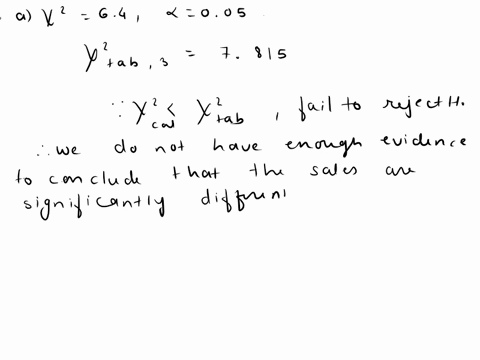 a) χ² = 6.4, α = 0.05
χ²tab, 3 = 7.815
∵ χ²cal < χ²tab, fail to reject H.
∴ we do not have enough evidence
to conclude that the sales are
significantly differen